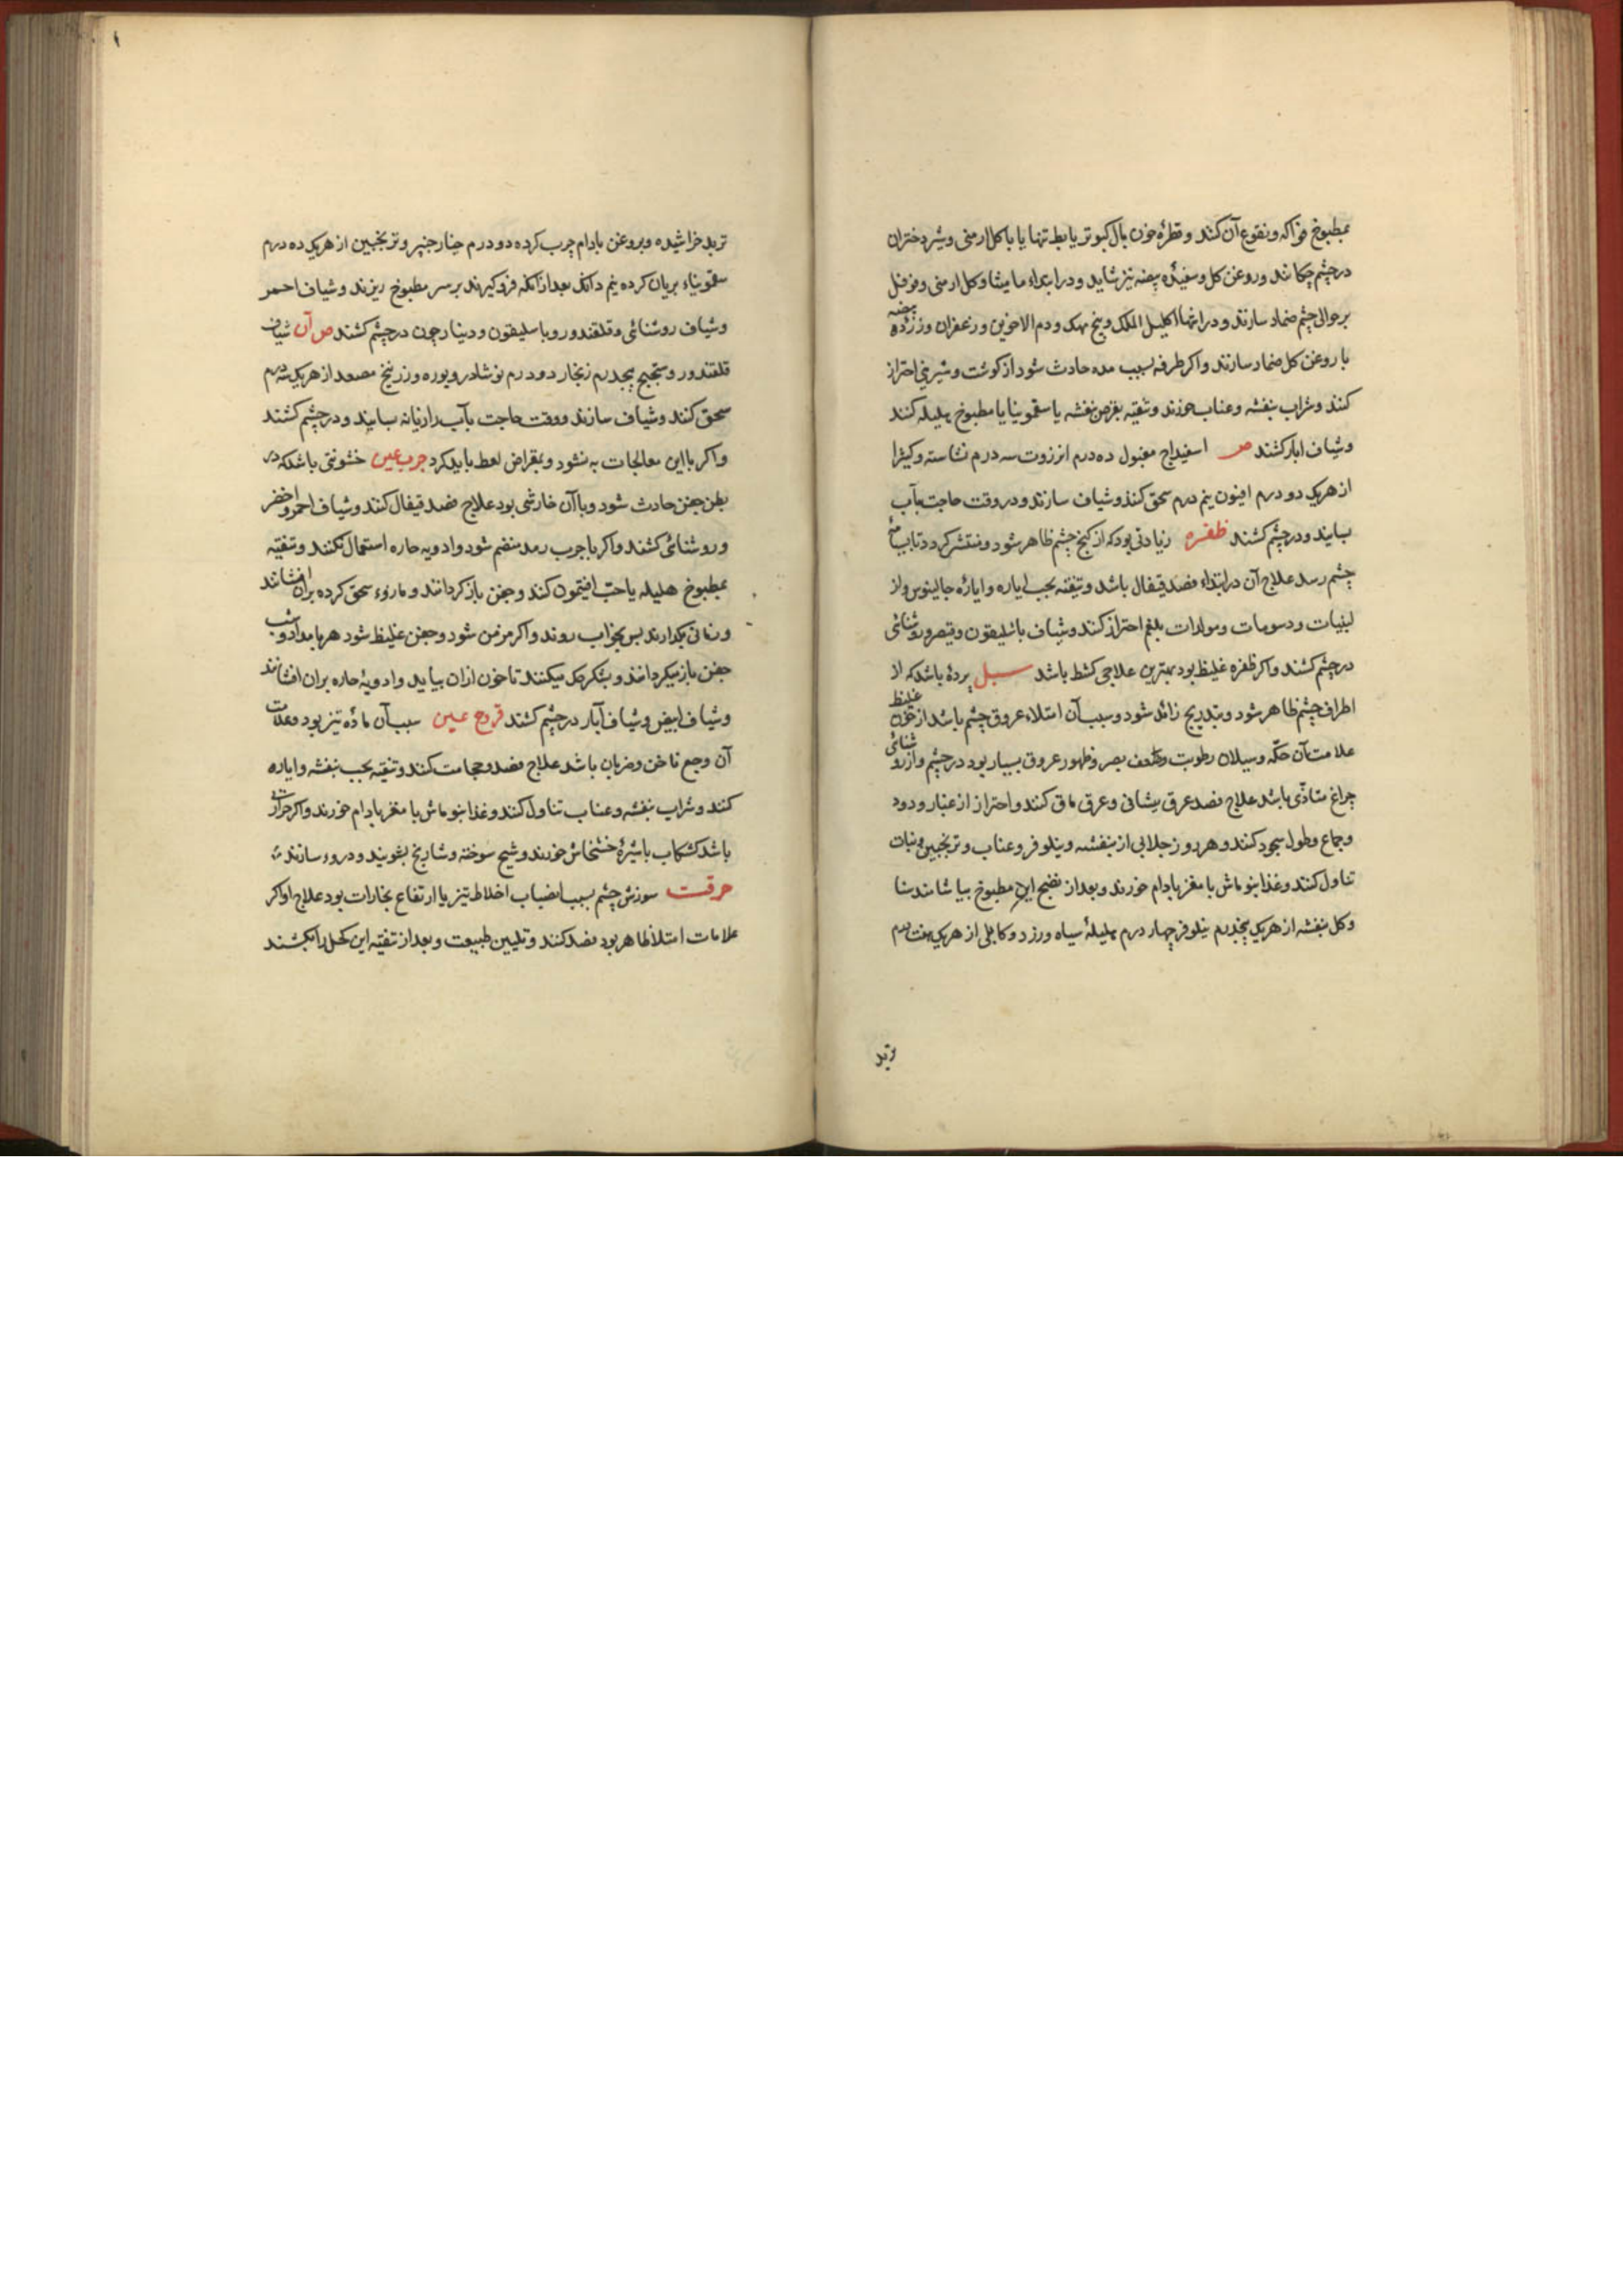 بمطبوخ فواکه ونقوع آن کنند وقطرهٔ خون بال کبوتر یا بط تنها یا با کل ارمنی وشیر دختران
درچشم چکانند وروغن کل وسفیدهٔ بیضه نیز شاید ودر ابتداء مامیثا وکل ارمنی وفوفل
برحوالی چشم ضماد سازند ودر انتها اکلیل الملک وبیخ مهک ودم الاخوین وزعفران وزردهٔ بیضه
با روغن کل ضماد سازند واکر طرفه بسبب مده حادث شود از کوشت وشیرینی احتراز
کنند وشراب بنفشه وعناب خورند وتنقیه بقرص بنفشه یا سقمونیا یا مطبوخ هلیله کنند
وشیاف ابار کشند ص اسفیداج مغسول ده درم انزروت سه درم نشاسته وکیثرا
از هریک دو درم افیون نیم درم سحق کنند وشیاف سازند ودر وقت حاجت بآب
بسایند ودرچشم کشند ظفره زیادتی بود که از کنج چشم ظاهر شود ومنتشر کردد تا بسیاهی
چشم رسد علاج آن در ابتداء فصد قیفال باشد وتنقیه بحب ایاره وایارهٔ جالینوس واز
لبنیات ودسومات ومولدات بلغم احتراز کنند وشیاف باسلیقون وقیصر وروشنائی
درچشم کشند واکر ظفره غلیظ بود بهترین علاجی کشط باشد سبل پردهٔ باشد که از
اطراف چشم ظاهر شود وبتدریج زائد شود وسبب آن امتلاء عروق چشم باشد از خون غلیظ
علامت آن حکّه وسیلان رطوبت وضعف بصر وظهور عروق بسیار بود درچشم واز روشنائی
چراغ متأذّی باشد علاج فصد عرق پیشانی وعرق ماق کنند واحتراز از غبار ودود
وجماع وطول سجود کنند وهر روز جلابی از بنفشه ونیلوفر وعناب وترنجبین ونبات
تناول کنند وغذا بنوماش با مغز بادام خورند وبعد از نضج این مطبوخ بیاشامند سنا
وکل بنفشه از هریک پنجدرم نیلوفر چهار درم هلیلهٔ سیاه وزرد وکابلی از هریک هفت درم
تربد
تربد خراشیده وبروغن بادام چرب کرده دو درم خیارچنبر وترنجبین از هریک ده درم
سقمونیاء بریان کرده نیم دانک بعد از آنکه فروکیرند برسر مطبوخ ریزند وشیاف احمر
وشیاف روشنائی وقلقندور وباسلیقون ودینارجون درچشم کشند ص آن شیاف
قلقندور وسنجیج پنجدرم زنجار دو درم نوشادر وبوره وزرنیخ مصعد از هریک سه درم
سحق کنند وشیاف سازند ووقت حاجت بآب رازیانه سایند ودرچشم کشند
واکر بااین معالجات به نشود وبمقراض لعط باید کرد جرب عین خشونتی باشد که در
بطن جفن حادث شود وباآن خارشی بود علاج فصد قیفال کنند وشیاف احمر واخضر
وروشنائی کشند واکر با جرب رمد منضم شود وادویه حاره استعمال نکنند وتنقیه
بمطبوخ هلیله یا حبّ افتیمون کنند وجفن باز کردانند ومازوء سحق کرده بران افشانند
وزمانی بکذارند پس بخواب روند واکر مزمن شود وجفن غلیظ شود هر بامداد وشب
جفن باز میکردانند وبشکر حک میکنند تا خون ازان بیاید وادویهٔ حاره بران افشانند
وشیاف ابیض وشیاف آبار درچشم کشند قروح عین سبب آن مادّه تیز بود وعلامت
آن وجع ناخس وضربان باشد علاج فصد وحجامت کنند وتنقیه بحب بنفشه وایاره
کنند وشراب بنفشه وعناب تناول کنند وغذا بنوماش با مغز بادام خورند واکر حرارت
باشد کشکاب باشیرهٔ خشخاش خورند وشیح سوخته وشاریخ بشویند ودروء سازند
حرقت سوزش چشم بسبب انصباب اخلاط تیز یا ارتفاع بخارات بود علاج او اکر
علامات امتلا ظاهر بود فصد کنند وتلیین طبیعت وبعد از تنقیه این کحل را بکشند